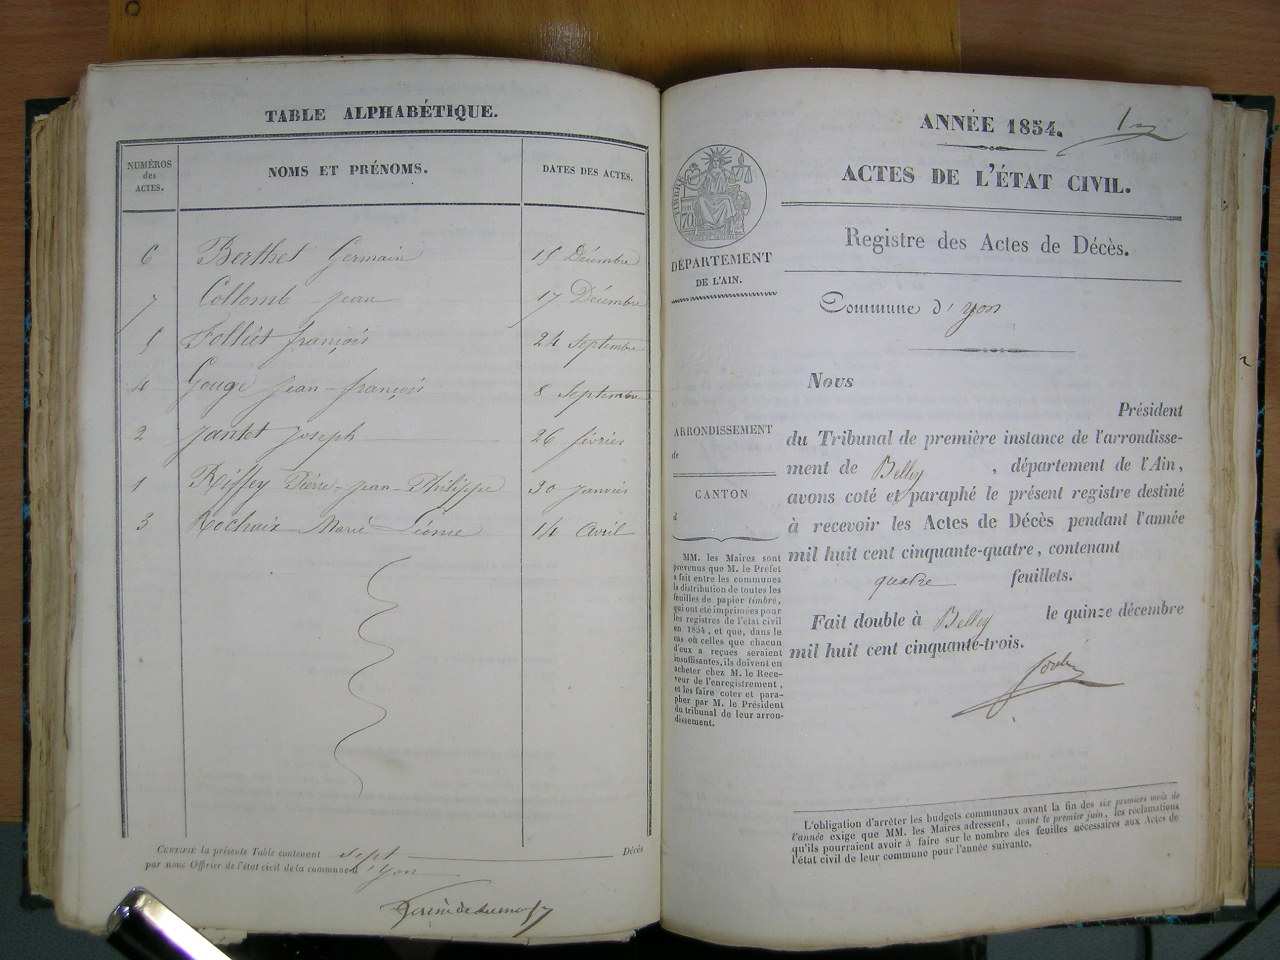 TABLE ALPHABÉTIQUE.
NUMÉROS des ACTES. NOMS ET PRÉNOMS. DATES DES ACTES.
6 Berthet Germain 15 Décembre
7 Collomb Jean 17 Décembre
5 Folliet françois 24 Septembre
4 Gouge Jean-françois 8 Septembre
2 Jantet Joseph 26 février
1 Riffey Pierre-Jean-Philippe 30 Janvier
3 Rochaix Marie 14 Avril
CERTIFIÉ la présente Table contenant sept Décès
par nous Officier de l'état civil de la commune d'Yon
ANNÉE 1854.
ACTES DE L'ÉTAT CIVIL.
TIMBRE
70
DÉPARTEMENT
DE L'AIN.
Registre des Actes de Décès.
Commune d'Yon
Nous
Président
du Tribunal de première instance de l'arrondisse-
ment de Belley, département de l'Ain,
avons coté et paraphé le présent registre destiné
à recevoir les Actes de Décès pendant l'année
mil huit cent cinquante-quatre, contenant
quatre feuillets.
Fait double à Belley le quinze décembre
mil huit cent cinquante-trois.
ARRONDISSEMENT
de
CANTON
d
MM. les Maires sont
prévenus que M. le Préfet
a fait entre les communes
la distribution de toutes les
feuilles de papier timbré,
qui ont été imprimées pour
les registres de l'état civil
en 1854, et que, dans le
cas où celles que chacun
d'eux a reçues seraient
insuffisantes, ils doivent en
acheter chez M. le Rece-
veur de l'enregistrement,
et les faire coter et para-
pher par M. le Président
du tribunal de leur arron-
dissement.
L'obligation d'arrêter les budgets communaux avant la fin des six premiers mois de
l'année exige que MM. les Maires adressent, avant le premier juin, les réclamations
qu'ils pourraient avoir à faire sur le nombre des feuilles nécessaires aux Actes de
l'état civil de leur commune pour l'année suivante.